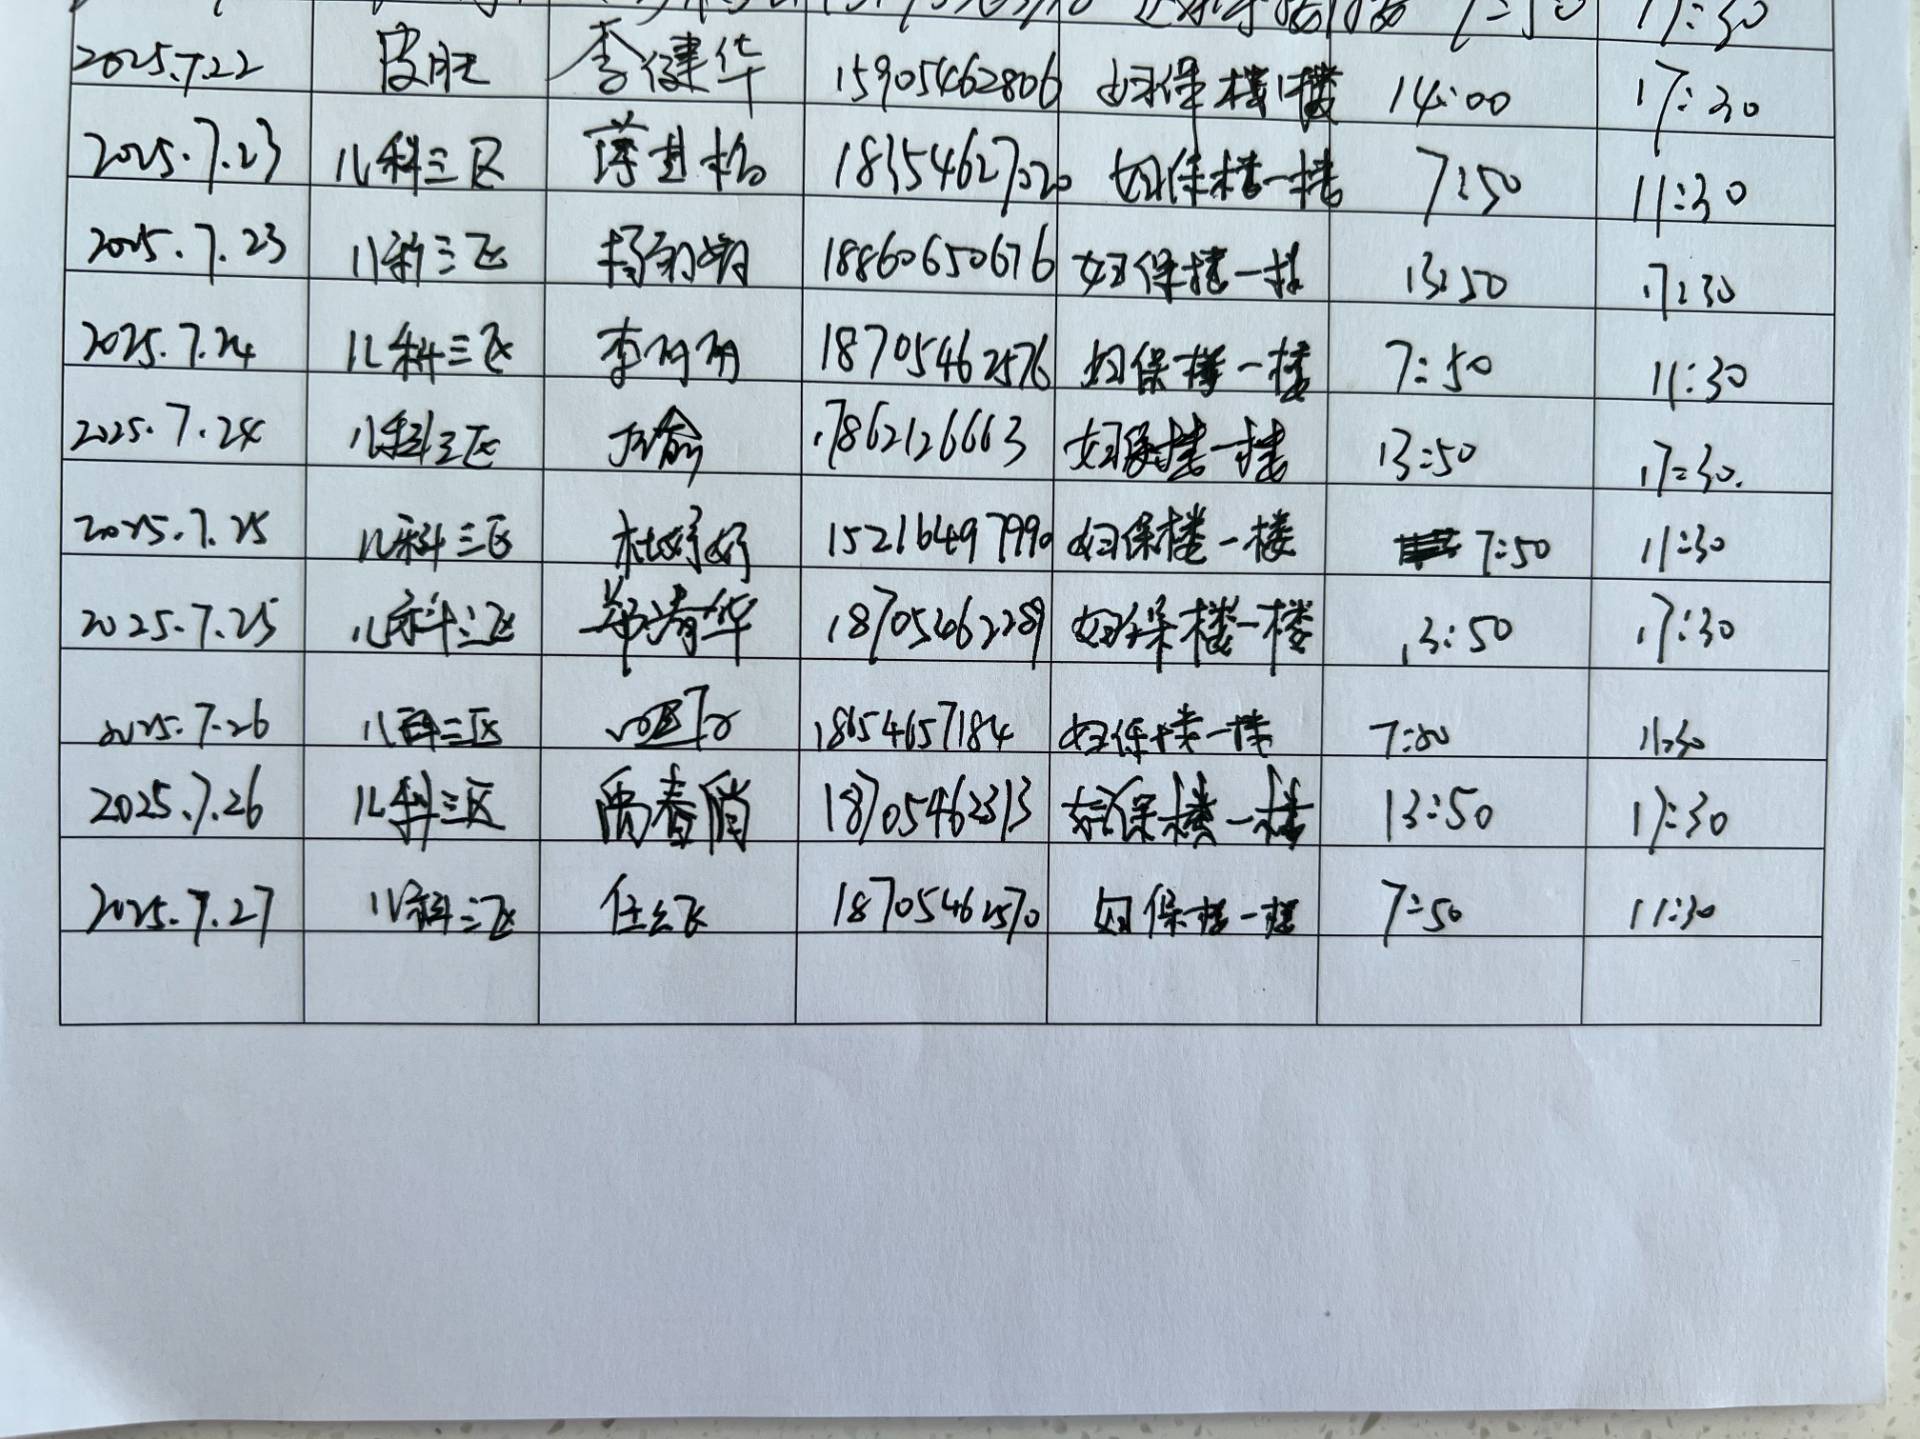 7:50 11:30
2025.7.22 皮肤 李健华 15905462806 妇保楼1楼 14:00 17:30
2025.7.23 儿科三区 18354627020 妇保楼一楼 7:50 11:30
2025.7.23 儿科三区 18860650676 妇保楼一楼 13:50 17:30
2025.7.24 儿科三区 李丽丽 18705462576 妇保楼一楼 7:50 11:30
2025.7.24 儿科三区 17862126663 妇保楼一楼 13:50 17:30.
2025.7.25 儿科三区 杜婷婷 15216497990 妇保楼一楼 7:50 11:30
2025.7.25 儿科三区 郑清华 18705462289 妇保楼一楼 13:50 17:30
2025.7.26 儿科三区 18654657184 妇保楼一楼 7:50 11:30
2025.7.26 儿科三区 禹春俏 18705462313 妇保楼一楼 13:50 17:30
2025.7.27 儿科三区 任云飞 18705462570 妇保楼一楼 7:50 11:30